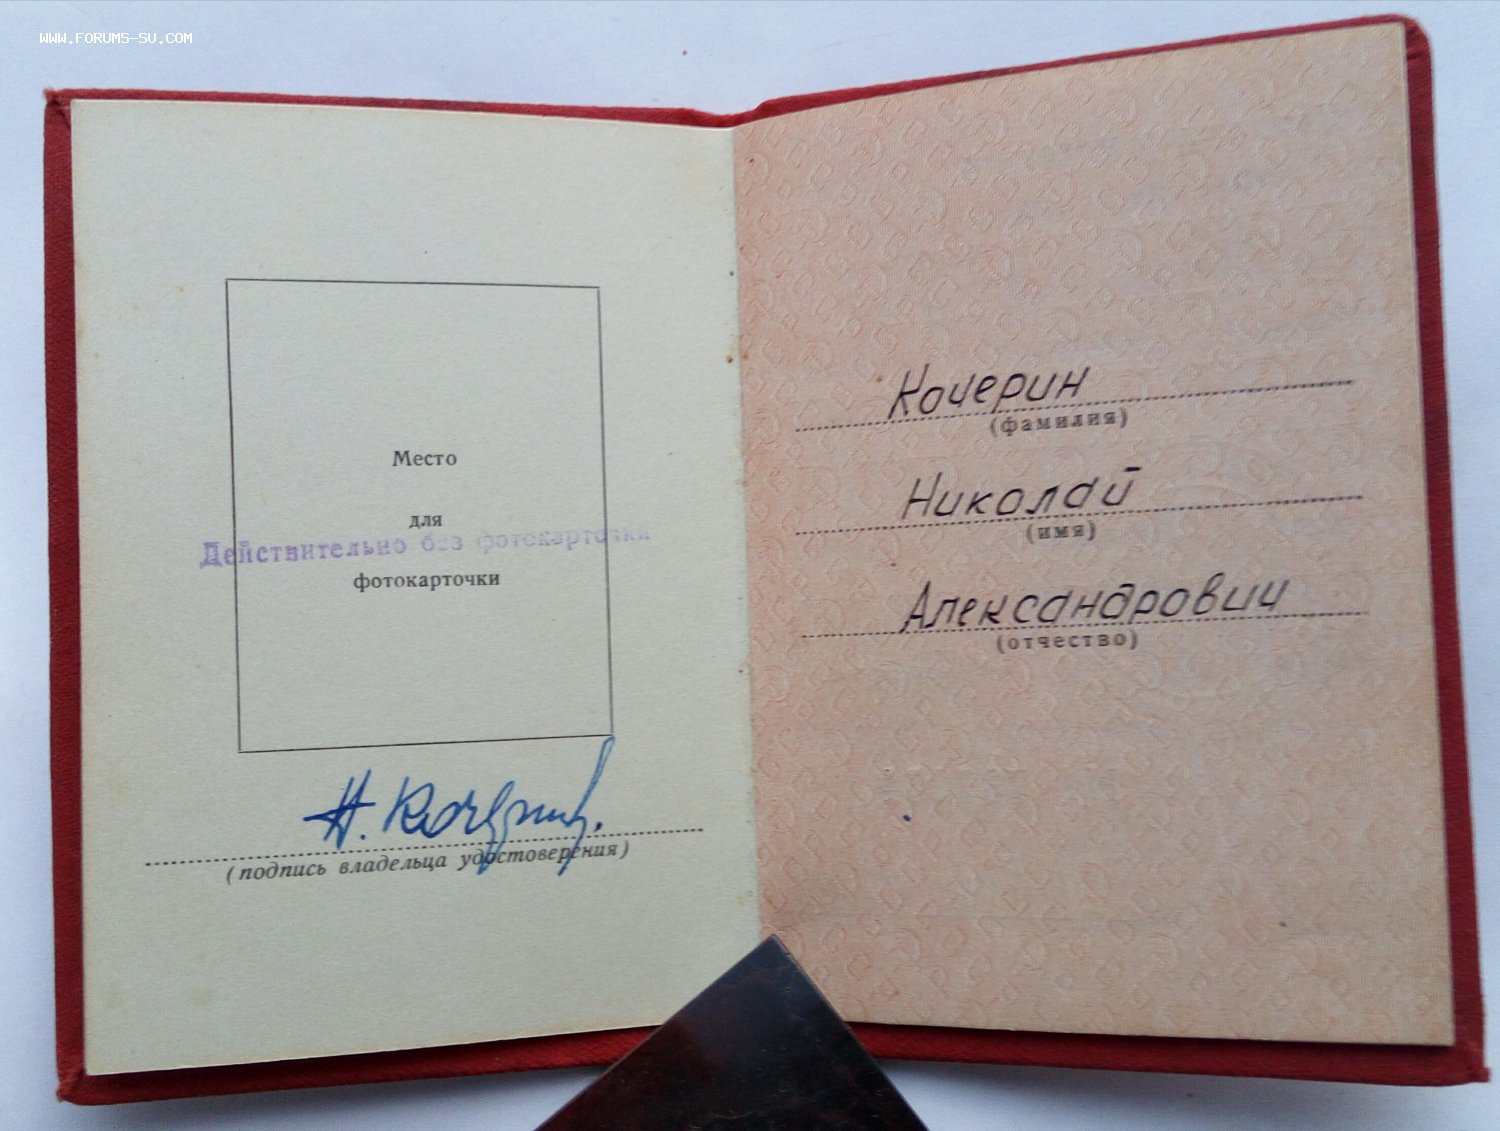 WWW.FORUMS-SU.COM
Место
для
Действительно без фотокарточки
фотокарточки
Н. Кочерин
(подпись владельца удостоверения)
Кочерин
(фамилия)
Николай
(имя)
Александрович
(отчество)